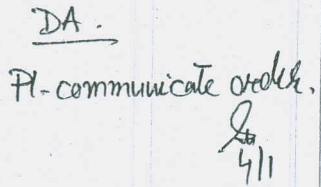 DA.
Pl. communicate order.
4/1